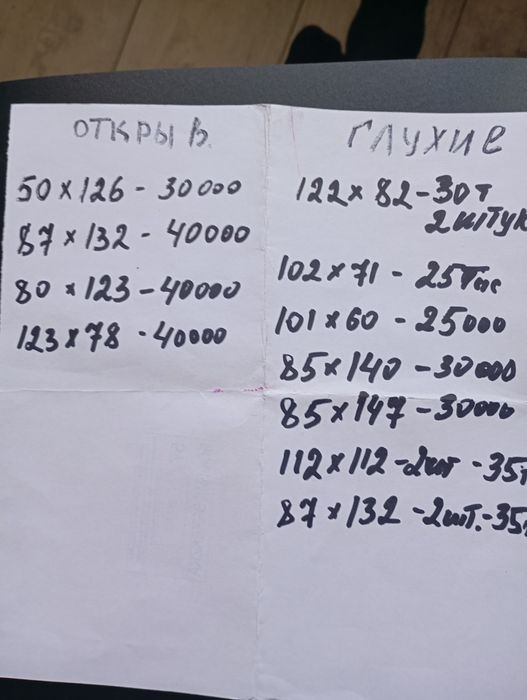 ОТКРЫВ.
50 х 126 - 30000
87 х 132 - 40000
80 х 123 - 40000
123 х 78 - 40000
ГЛУХИЕ
122 х 82 - 30т
2штук
102 х 71 - 25тыс
101 х 60 - 25000
85 х 140 - 30000
85 х 147 - 30000
112 х 112 - 2шт - 35т
87 х 132 - 2шт. - 35т